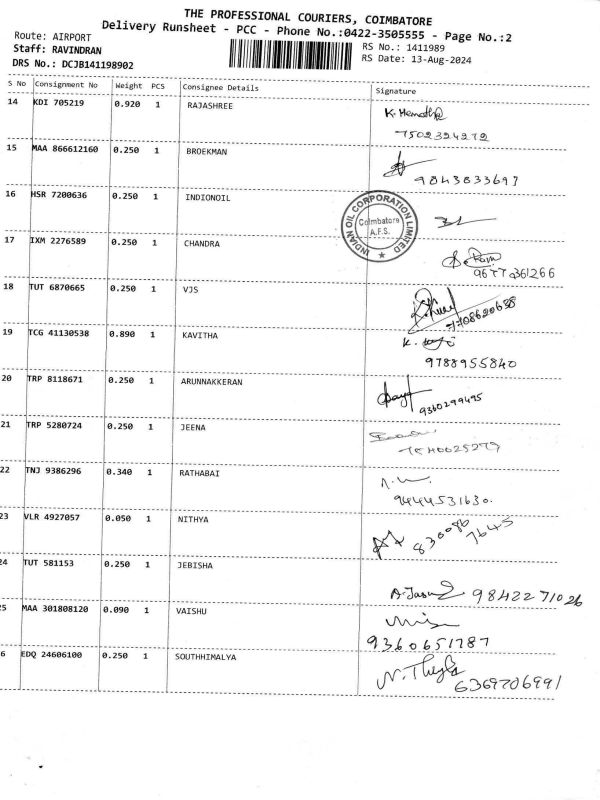 THE PROFESSIONAL COURIERS, COIMBATORE
Delivery Runsheet - PCC - Phone No.:0422-3505555 - Page No.:2
Route: AIRPORT
Staff: RAVINDRAN
DRS No.: DCJB141198902
RS No.: 1411989
RS Date: 13-Aug-2024
S No Consignment No Weight PCS Consignee Details Signature
14 KDI 705219 0.920 1 RAJASHREE
7502324272
15 MAA 866612160 0.250 1 BROEKMAN
9843833697
16 HSR 7200636 0.250 1 INDIONOIL
INDIAN OIL CORPORATION LIMITED
Coimbatore
A.F.S.
17 IXM 2276589 0.250 1 CHANDRA
96770361266
18 TUT 6870665 0.250 1 VJS
7708620688
19 TCG 41130538 0.890 1 KAVITHA
9788955840
20 TRP 8118671 0.250 1 ARUNNAKKERAN
9360299495
21 TRP 5280724 0.250 1 JEENA
22 TNJ 9386296 0.340 1 RATHABAI
9444531630.
23 VLR 4927057 0.050 1 NITHYA
830086
7645
24 TUT 581153 0.250 1 JEBISHA
9842271026
25 MAA 301808120 0.090 1 VAISHU
9360651787
6 EDQ 24606100 0.250 1 SOUTHHIMALYA
6369706991